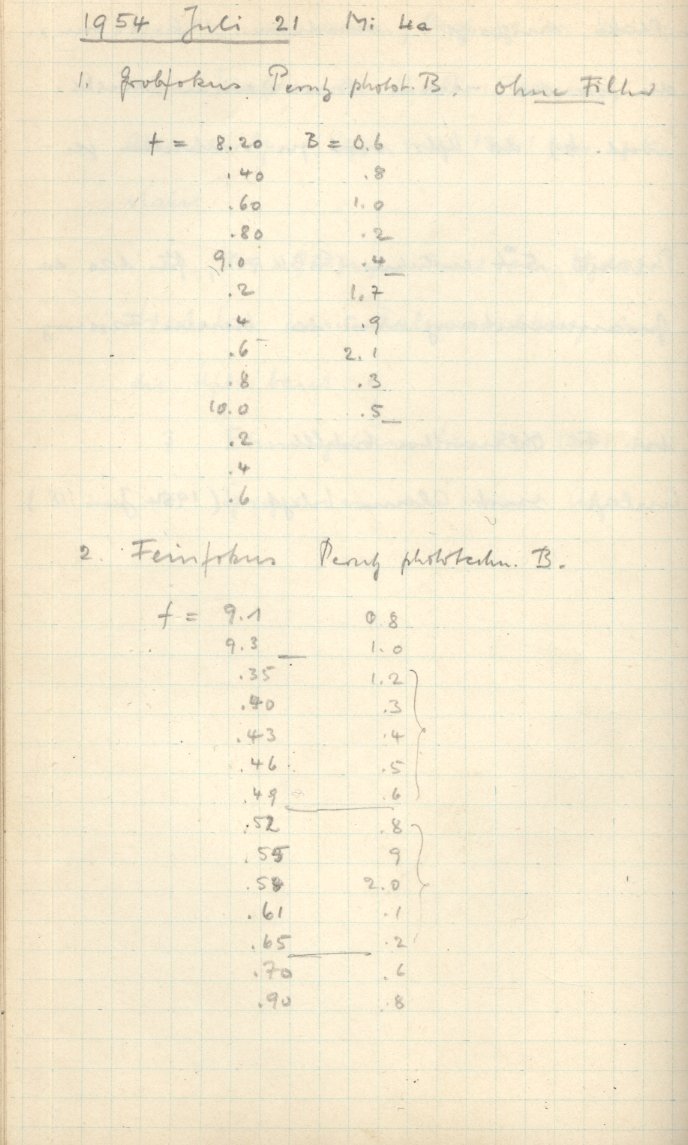 1954 Juli 21 Mi 4a
1. Grobfokus Perutz photot. B. ohne Filter
f = 8.20 B = 0.6
.40 .8
.60 1.0
.80 .2
9.0 .4
.2 1.7
.4 .9
.6 2.1
.8 .3
10.0 .5
.2
.4
.6
2. Feinfokus Perutz phototechn. B.
f = 9.1 0.8
9.3 1.0
.35 1.2
.40 .3
.43 .4
.46 .5
.49 .6
.52 .8
.55 9
.58 2.0
.61 .1
.65 .2
.70 .6
.90 .8